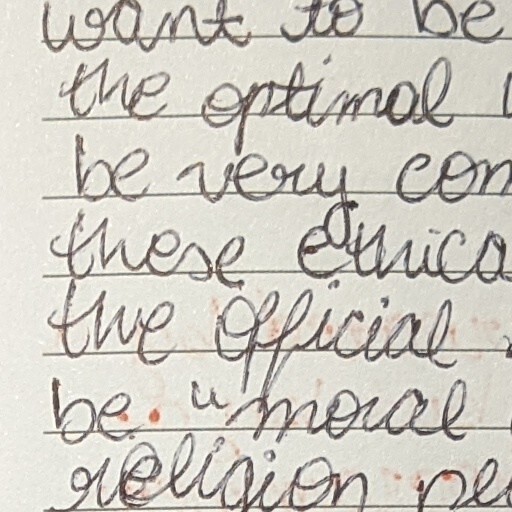 want to be
the optimal
be very con
these ethica
the official
be "moral
religion pe